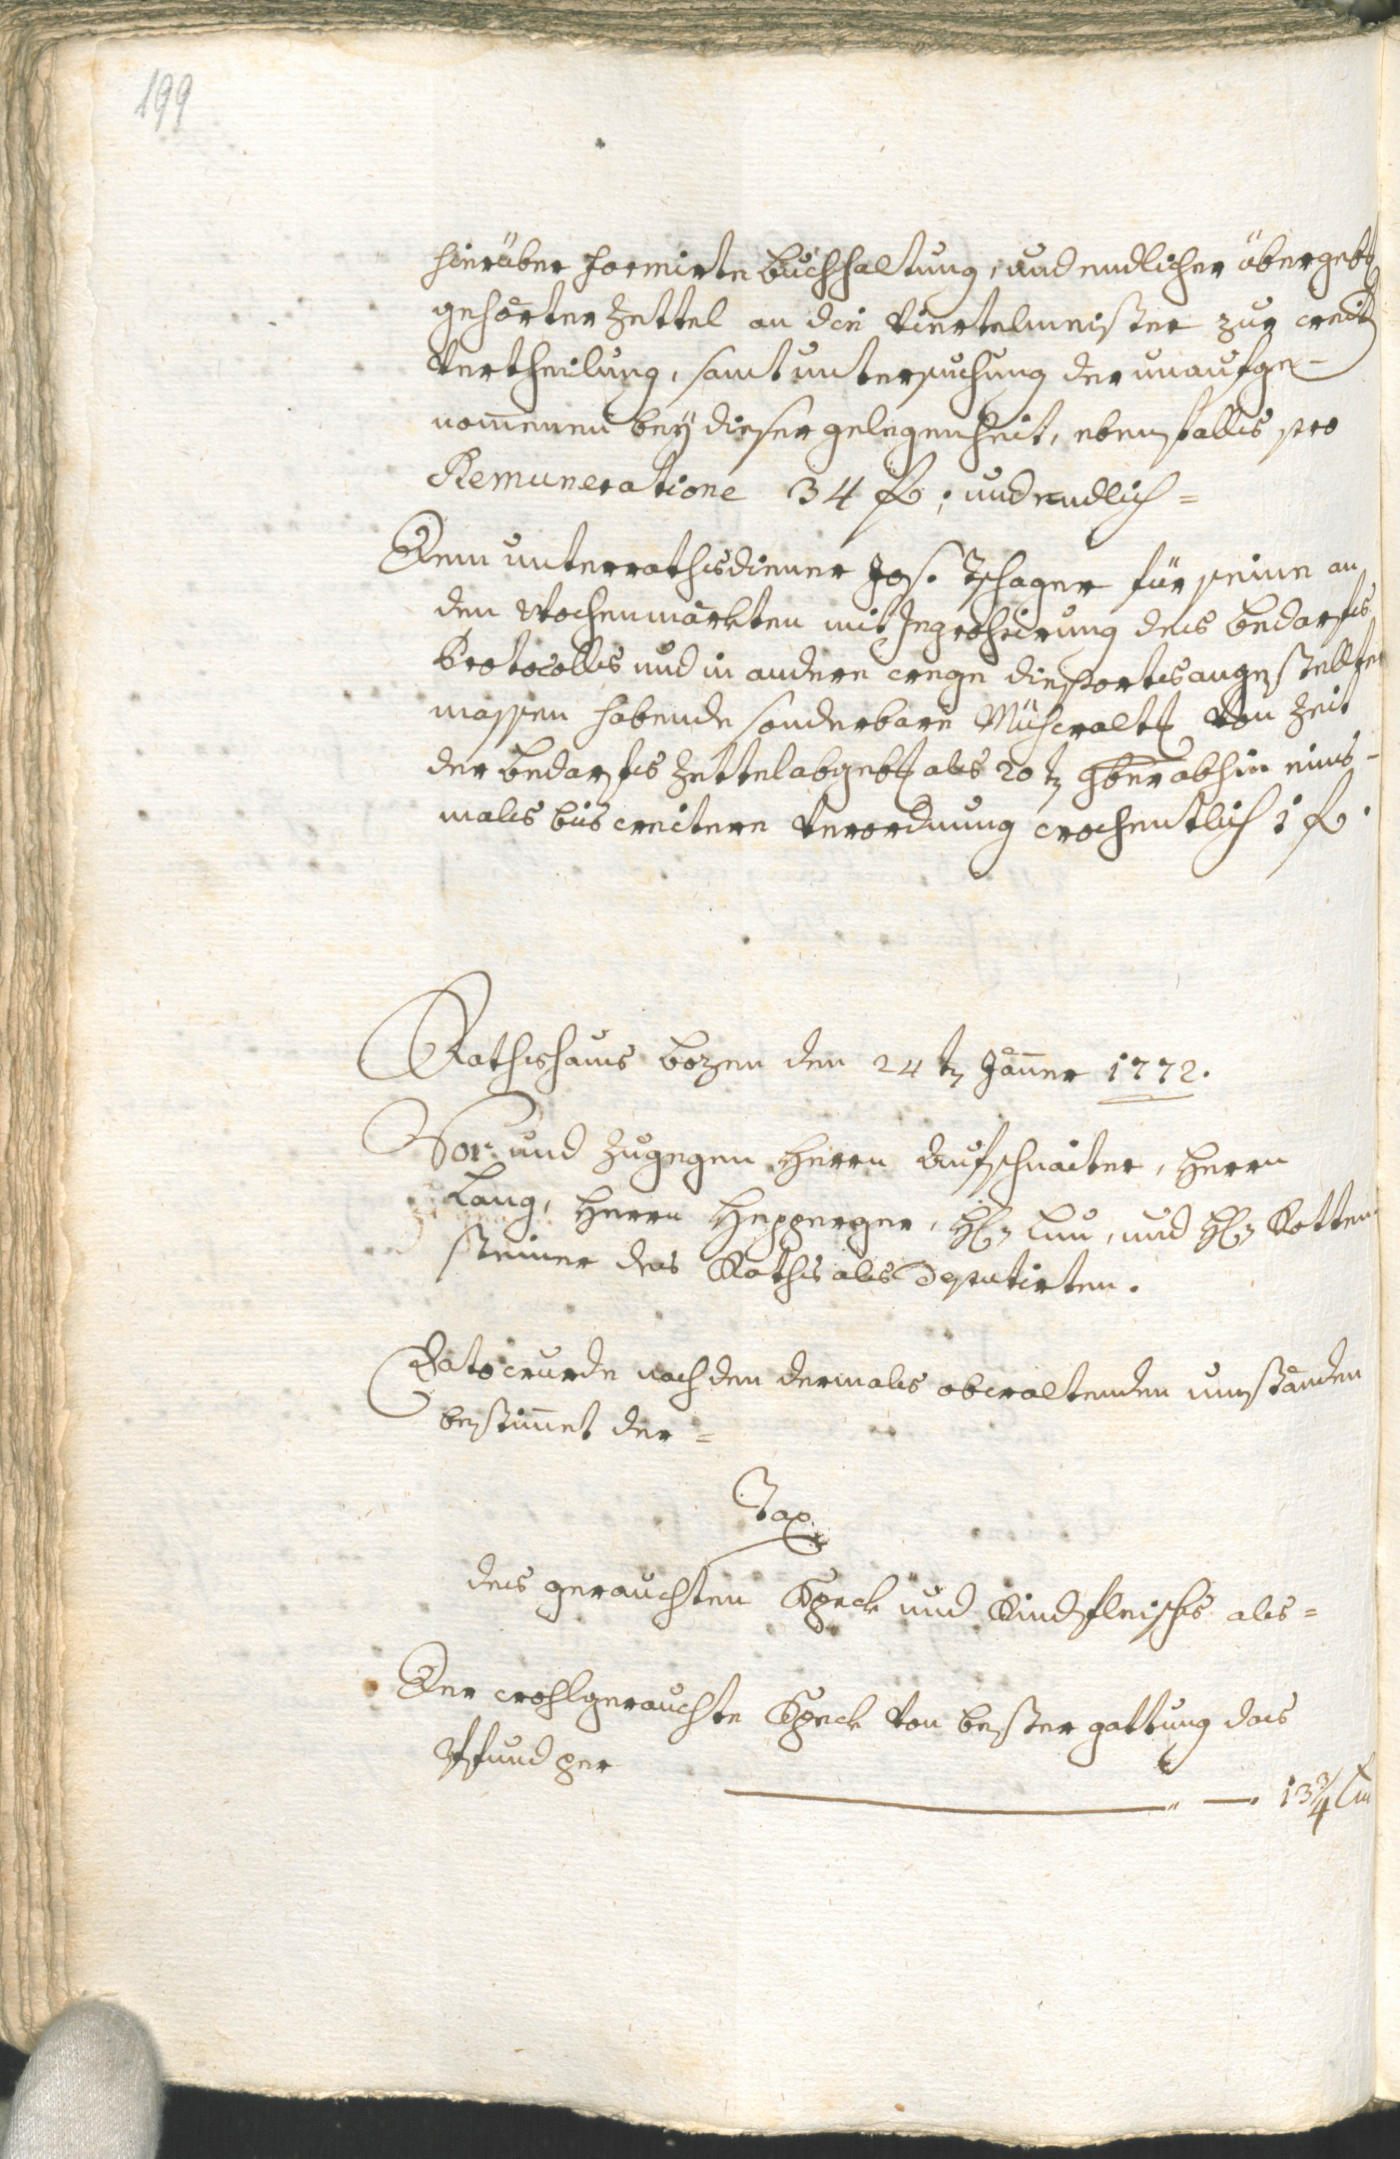 199
hierüber formirte Buchhaltung, und endlicher übergebg
gehörter Zettel an die Viertelmeister zur weit
Vertheilung, samt untersuchung der unaufge-
nom̄enen beÿ dieser gelegenheit, ebenfalls pro
Remuneratione 34 f; und endlich =
Dem unterrathsdiener Jos. Tschager für seine an
den Wochenmärkten mit Ingrossirung des Bedarfs
Protocolls und in andere weege diesforts angestellter
massen habende sonderbare Mühewaltg von Zeit
der bedarfs Zettel abgebg als 20tn 9ber abhin eins-
mals bis weitere Verordnung wochentlich 1 f.
Rathshaus Bozen den 24tn Jäner 1772.
Vor und zugegen Herrn Aufschnaiter, Herrn
Lang, Herrn Hepperger, H: Luu, und H: Rotten-
steiner des Raths als Deputirten.
Dato wurde nach den dermals obwaltenden umständen
bestim̄et der =
Tax
des gerauchten Speck und Rindfleischs als =
Der wohlgerauchte Speck von bester gattung das
Pfund per
— 13 3/4